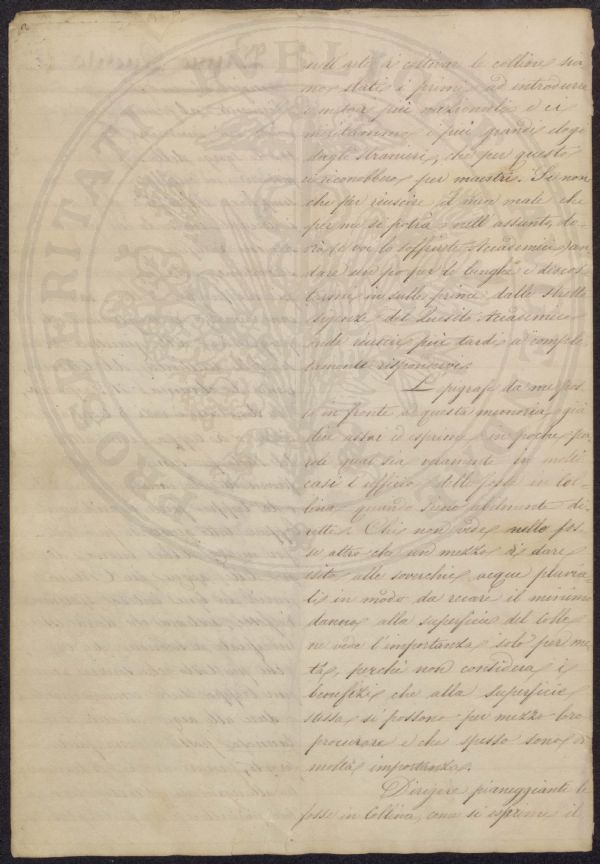 nell'arte di coltivare le colline sia-
mo stati i primi ad introdurre
i metodi più razionali, e ci
meritammo i più grandi elogi
dagli stranieri, che per questo
ci riconobbero per maestri. Se non
che per riuscire, il men male che
per me si potrà nell'assunto, do-
vrete voi soffrire, Accademici, an-
dare un po' per le lunghe e discos-
tarmi in sulle prime dalle strette
esigenze del Quesito Accademico
onde riuscire più tardi a comple-
tamente rispondervi.
L'epigrafe da me pos-
ta in fronte a questa memoria,
dice assai ed esprime in poche pa-
role qual sia veramente in molti
casi l'ufficio delle fosse in Col-
lina, quando sieno abilmente di-
rette. Chi non vede nelle fos-
se altro che un mezzo di dare
esito alle soverchie acque pluvia-
li in modo da recare il minimo
danno alla superficie del Colle,
ne vede l'importanza solo per me-
tà, perché non considera i
benefizi che alla superficie
stessa si possono per mezzo loro
procurare e che spesso sono di
molta importanza.
Dirigere pianeggianti le
fosse in Collina, come si esprime il
PUBLICAE
PROSPERITATI